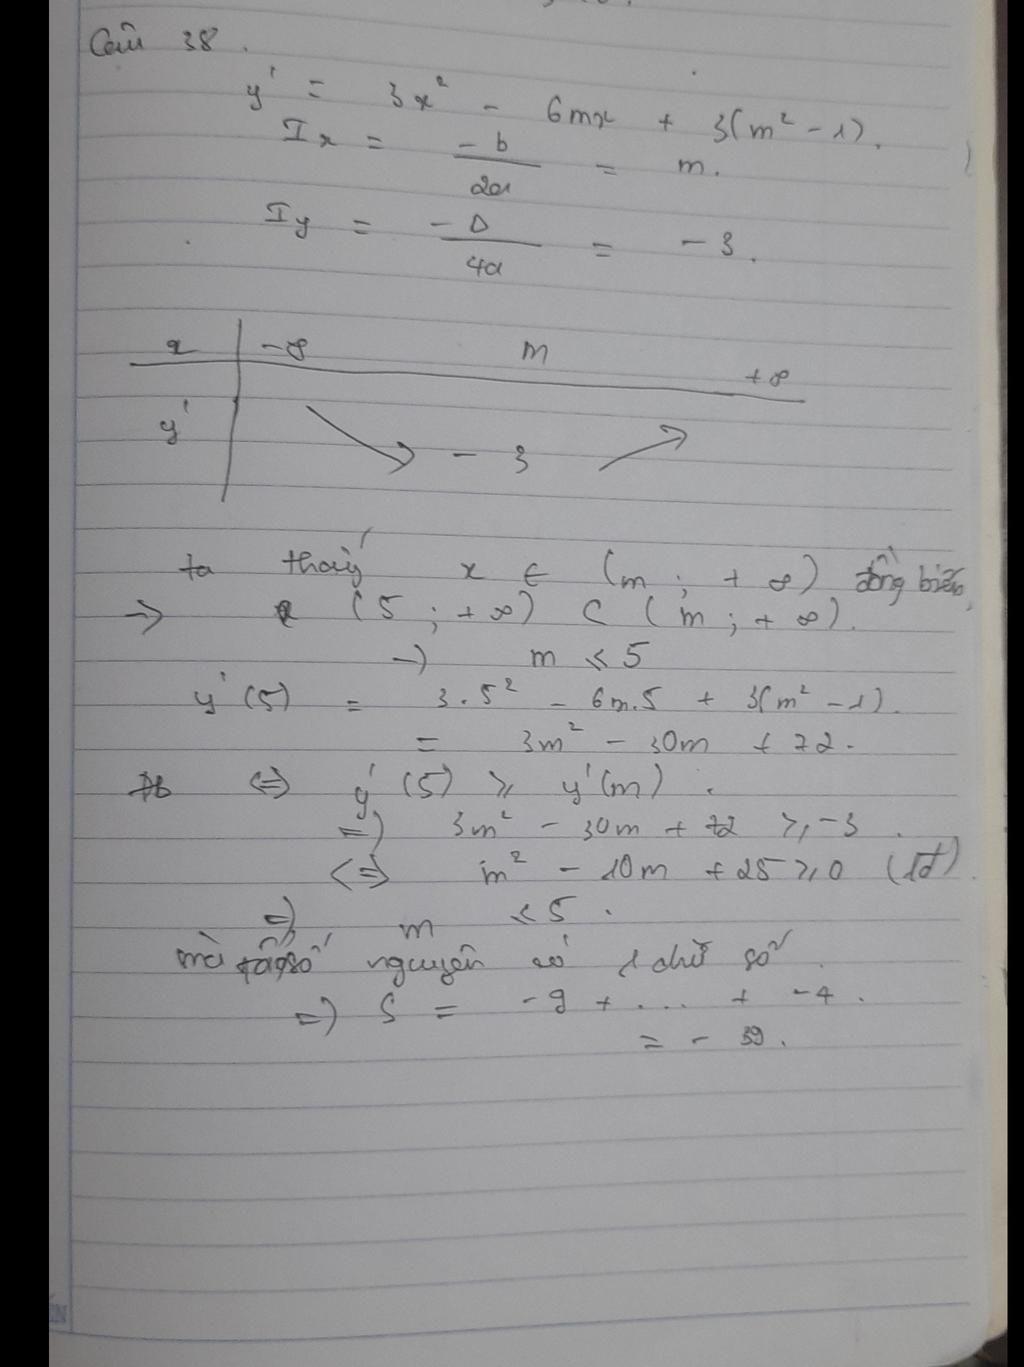 Câu 38.
y' = 3x² - 6mx + 3(m² - 1).
Ix = -b/2a = m.
Iy = -Δ/4a = -3.
x -∞ m +∞
y' - 3
ta thấy x ∈ (m ; + ∞) đồng biến,
→ (5 ; +∞) ⊂ (m ; + ∞).
→ m ≤ 5
y'(5) = 3.5² - 6m.5 + 3(m² - 1).
= 3m² - 30m + 72.
⇔ y'(5) ≥ y'(m).
⇒ 3m² - 30m + 72 ≥ -3.
⇔ m² - 10m + 25 ≥ 0 (lđ).
⇒ m ≤ 5.
mà số nguyên có 1 chữ số.
⇒ S = -9 + .... + -4.
= - 39.